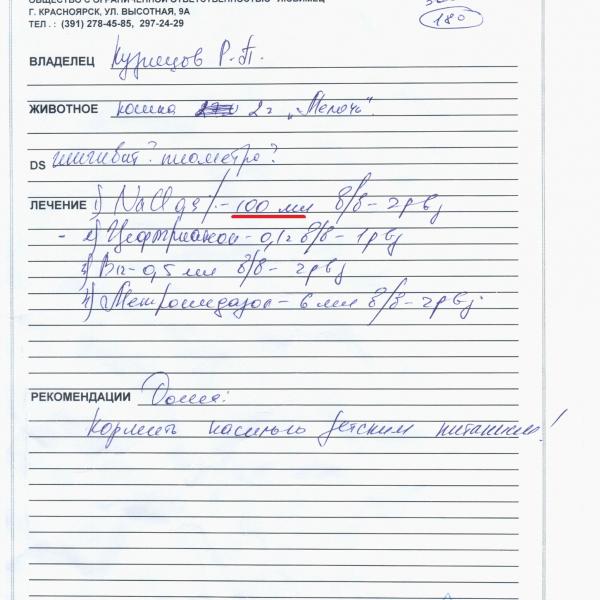 ОБЩЕСТВО С ОГРАНИЧЕННОЙ ОТВЕТСТВЕННОСТЬЮ "ЛЮБИМЕЦ"
Г. КРАСНОЯРСК, УЛ. ВЫСОТНАЯ, 9А
ТЕЛ.: (391) 278-45-85, 297-24-29
180
ВЛАДЕЛЕЦ Кузнецов Р.П.
ЖИВОТНОЕ кошка 2г „Мелочь"
DS гингивит? пиометра?
ЛЕЧЕНИЕ 1) NaCl 0,9% - 100 мл в/в - 2р в д
- 2) Цефтриаксон - 0,1г в/в - 1р в д
3) B12 - 0,5 мл в/в - 2р в д
4) Метронидазол - 6 мл в/в - 2р в д.
РЕКОМЕНДАЦИИ Дома:
Кормить насильно детским питанием!